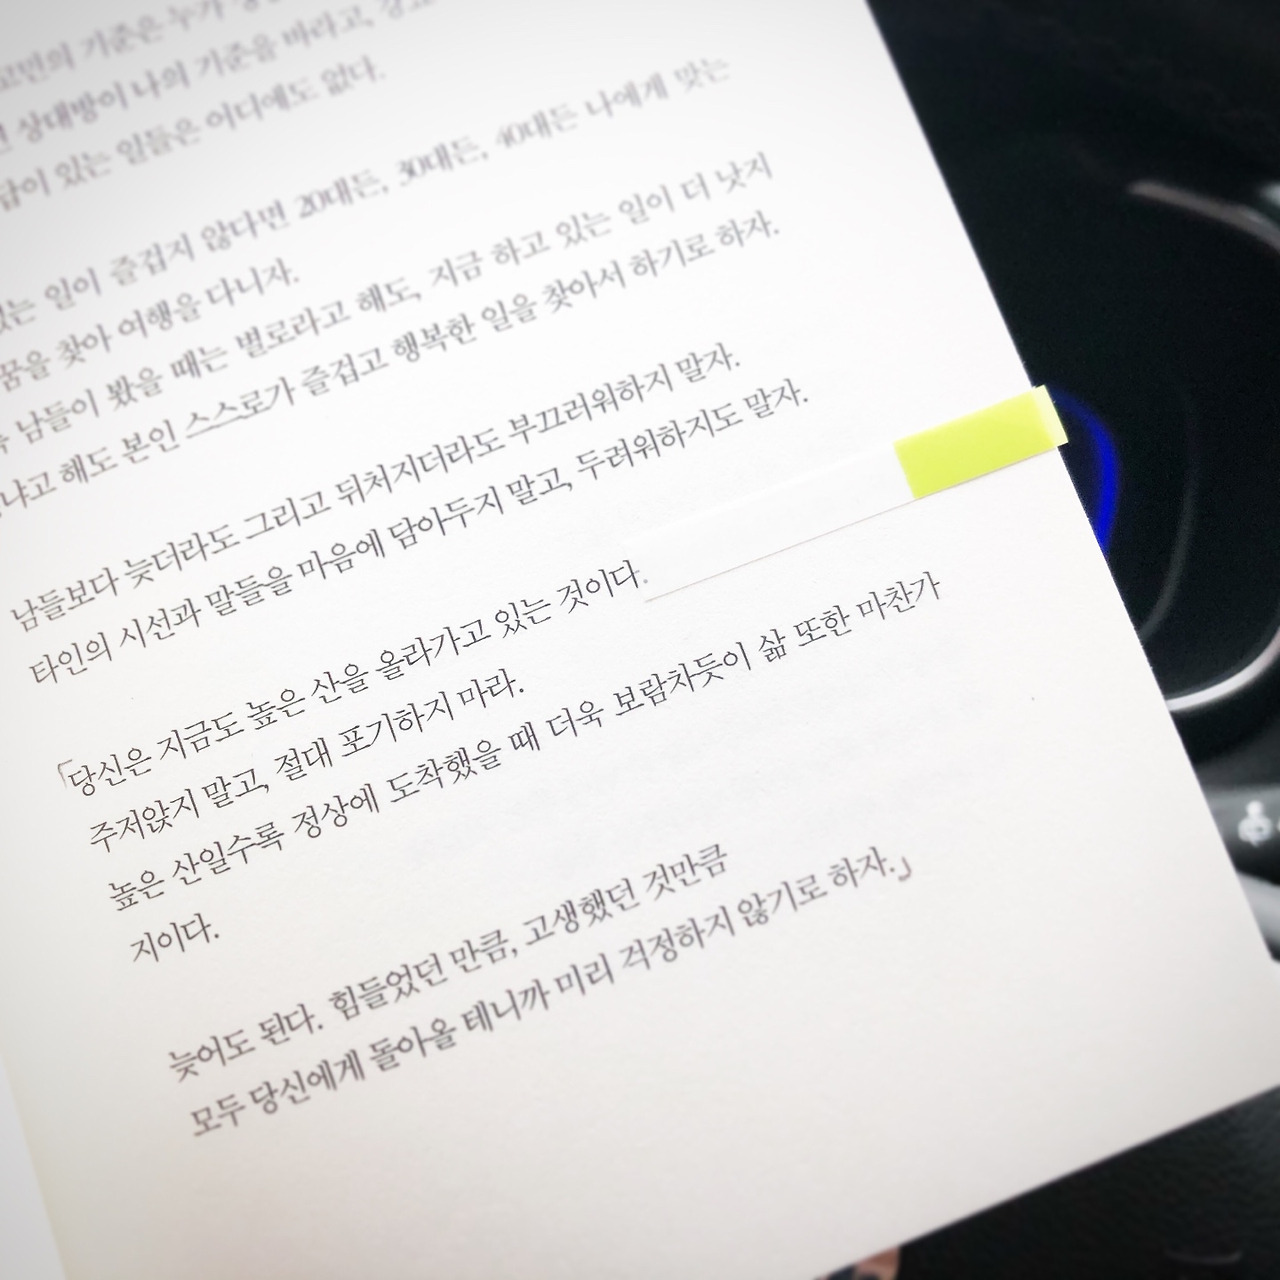 기준은 누가
상대방이 나의 기준을 바라고,
있는 일들은 어디에도 없다.
일이 즐겁지 않다면 20대든, 30대든, 40대든 나에게 맞는
꿈을 찾아 여행을 다니자.
남들이 봤을 때는 별로라고 해도, 지금 하고 있는 일이 더 낫지
해도 본인 스스로가 즐겁고 행복한 일을 찾아서 하기로 하자.
남들보다 늦더라도 그리고 뒤처지더라도 부끄러워하지 말자.
타인의 시선과 말들을 마음에 담아두지 말고, 두려워하지도 말자.
「당신은 지금도 높은 산을 올라가고 있는 것이다.
주저앉지 말고, 절대 포기하지 마라.
높은 산일수록 정상에 도착했을 때 더욱 보람차듯이 삶 또한 마찬가
지이다.
늦어도 된다. 힘들었던 만큼, 고생했던 것만큼
모두 당신에게 돌아올 테니까 미리 걱정하지 않기로 하자.」